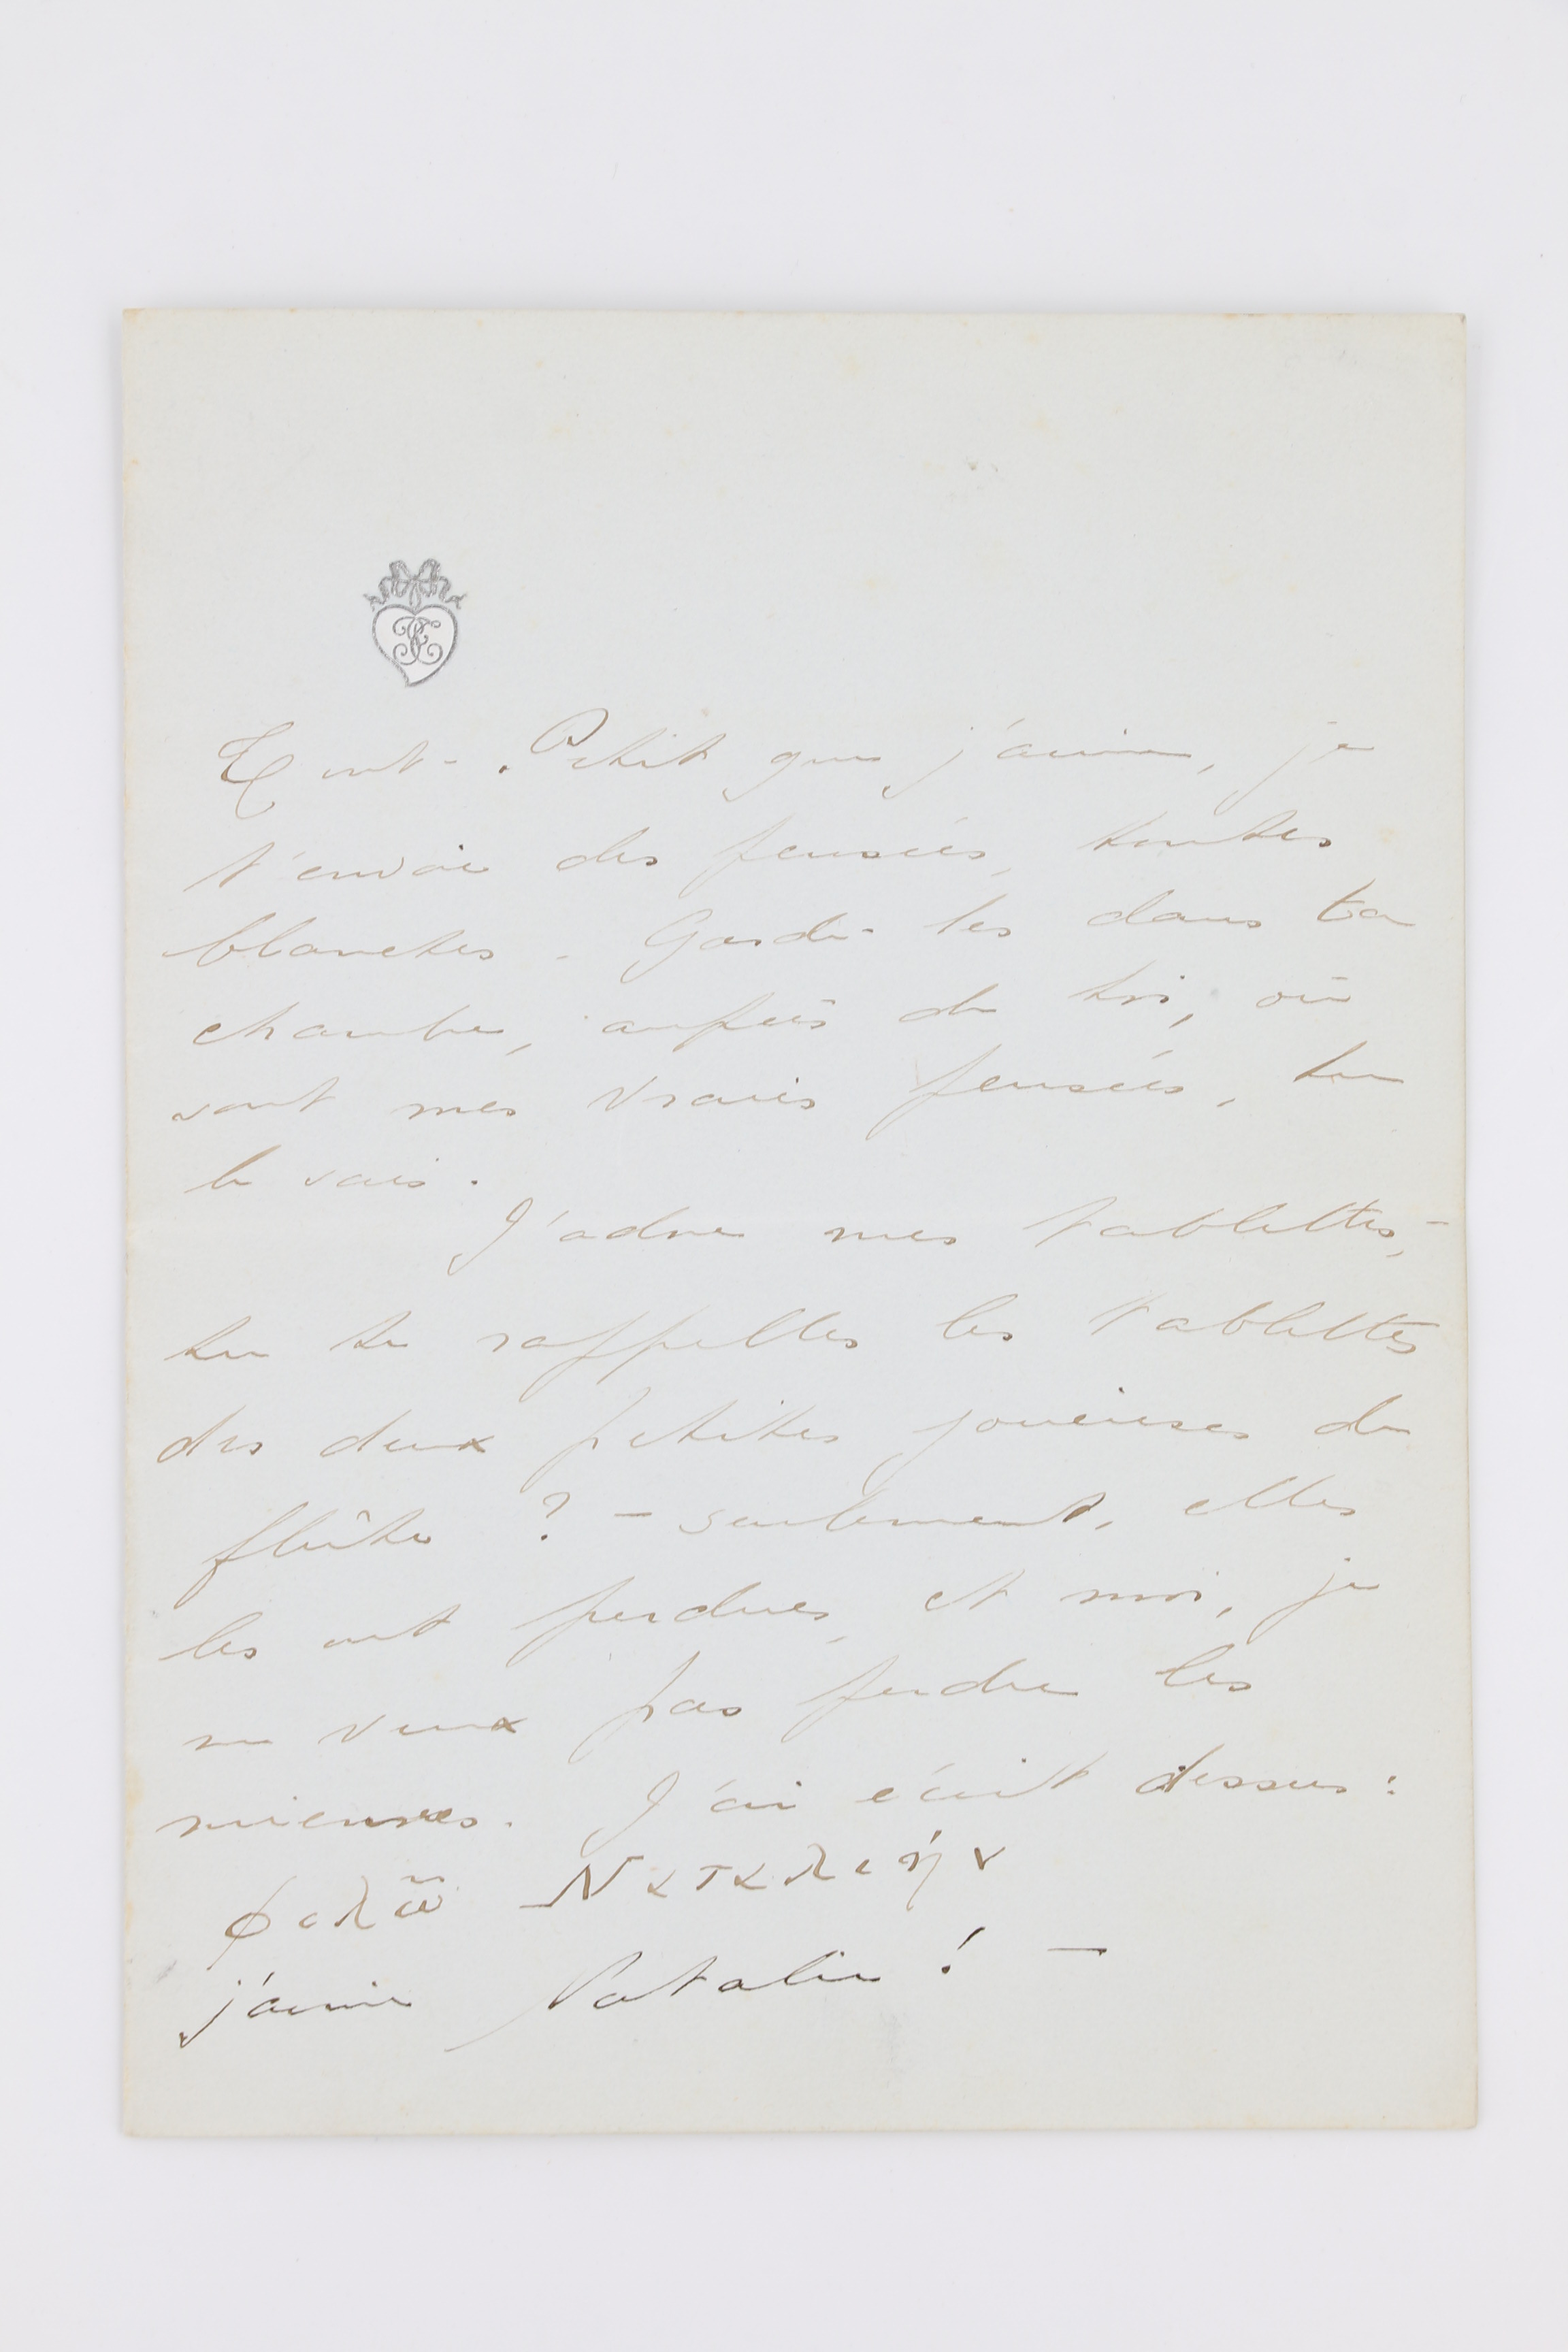 Tout-Petit que j'aime, je
t'envoie des pensées, toutes
blanches - Garde-les dans ta
chambre, auprès de toi, où
sont mes vraies pensées, tu
le sais.
J'adore mes tablettes, -
tu te rappelles les tablettes
des deux petites joueuses de
flûte ? - seulement, elles
les ont perdues, et moi, je
ne veux pas perdre les
miennes. J'ai écrit dessus :
φιλῶ Ναταλιήν
j'aime Natalie ! -